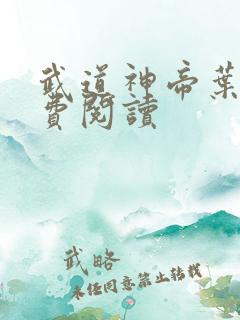 武道神帝葉
費閱讀
武略
未经同意禁止转载